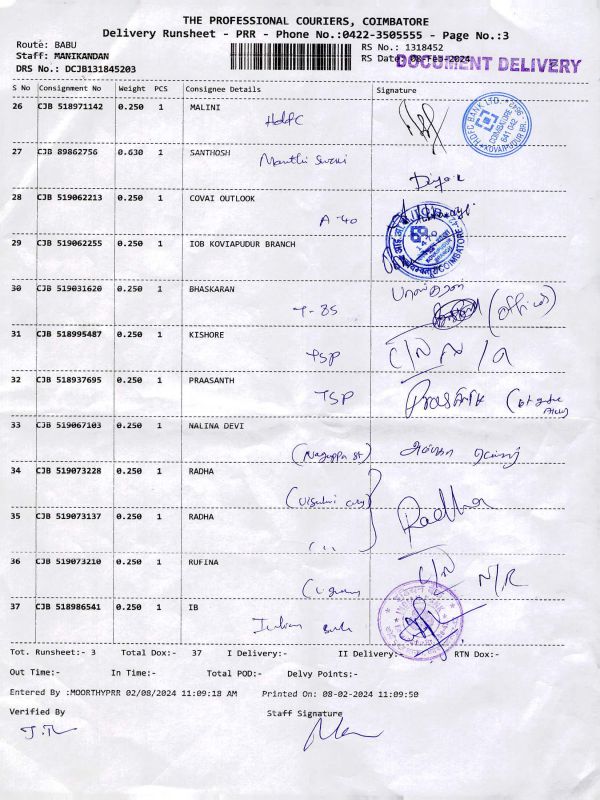 THE PROFESSIONAL COURIERS, COIMBATORE
Delivery Runsheet - PRR - Phone No.:0422-3505555 - Page No.:3
Route: BABU
RS No.: 1318452
Staff: MANIKANDAN
RS Date: 08-Feb-2024
DOCUMENT DELIVERY
DRS No.: DCJB131845203
S No Consignment No Weight PCS Consignee Details Signature
26 CJB 518971142 0.250 1 MALINI
HDFC BANK LTD. COIMBATORE 641 042 KOVAIPUDUR BR.
Hdfc
27 CJB 89862756 0.630 1 SANTHOSH
28 CJB 519062213 0.250 1 COVAI OUTLOOK
A-40
29 CJB 519062255 0.250 1 IOB KOVIAPUDUR BRANCH
COIMBATORE
30 CJB 519031620 0.250 1 BHASKARAN
T-85 (Office)
31 CJB 518995487 0.250 1 KISHORE
TSP C/N N/A
32 CJB 518937695 0.250 1 PRAASANTH
TSP Prasanth
33 CJB 519067103 0.250 1 NALINA DEVI
34 CJB 519073228 0.250 1 RADHA
35 CJB 519073137 0.250 1 RADHA
Radha
36 CJB 519073210 0.250 1 RUFINA
C/N N/R
37 CJB 518986541 0.250 1 IB
Indian Bank
Tot. Runsheet:- 3 Total Dox:- 37 I Delivery:- II Delivery:- RTN Dox:-
Out Time:- In Time:- Total POD:- Delvy Points:-
Entered By :MOORTHYPRR 02/08/2024 11:09:18 AM Printed On: 08-02-2024 11:09:50
Verified By Staff Signature